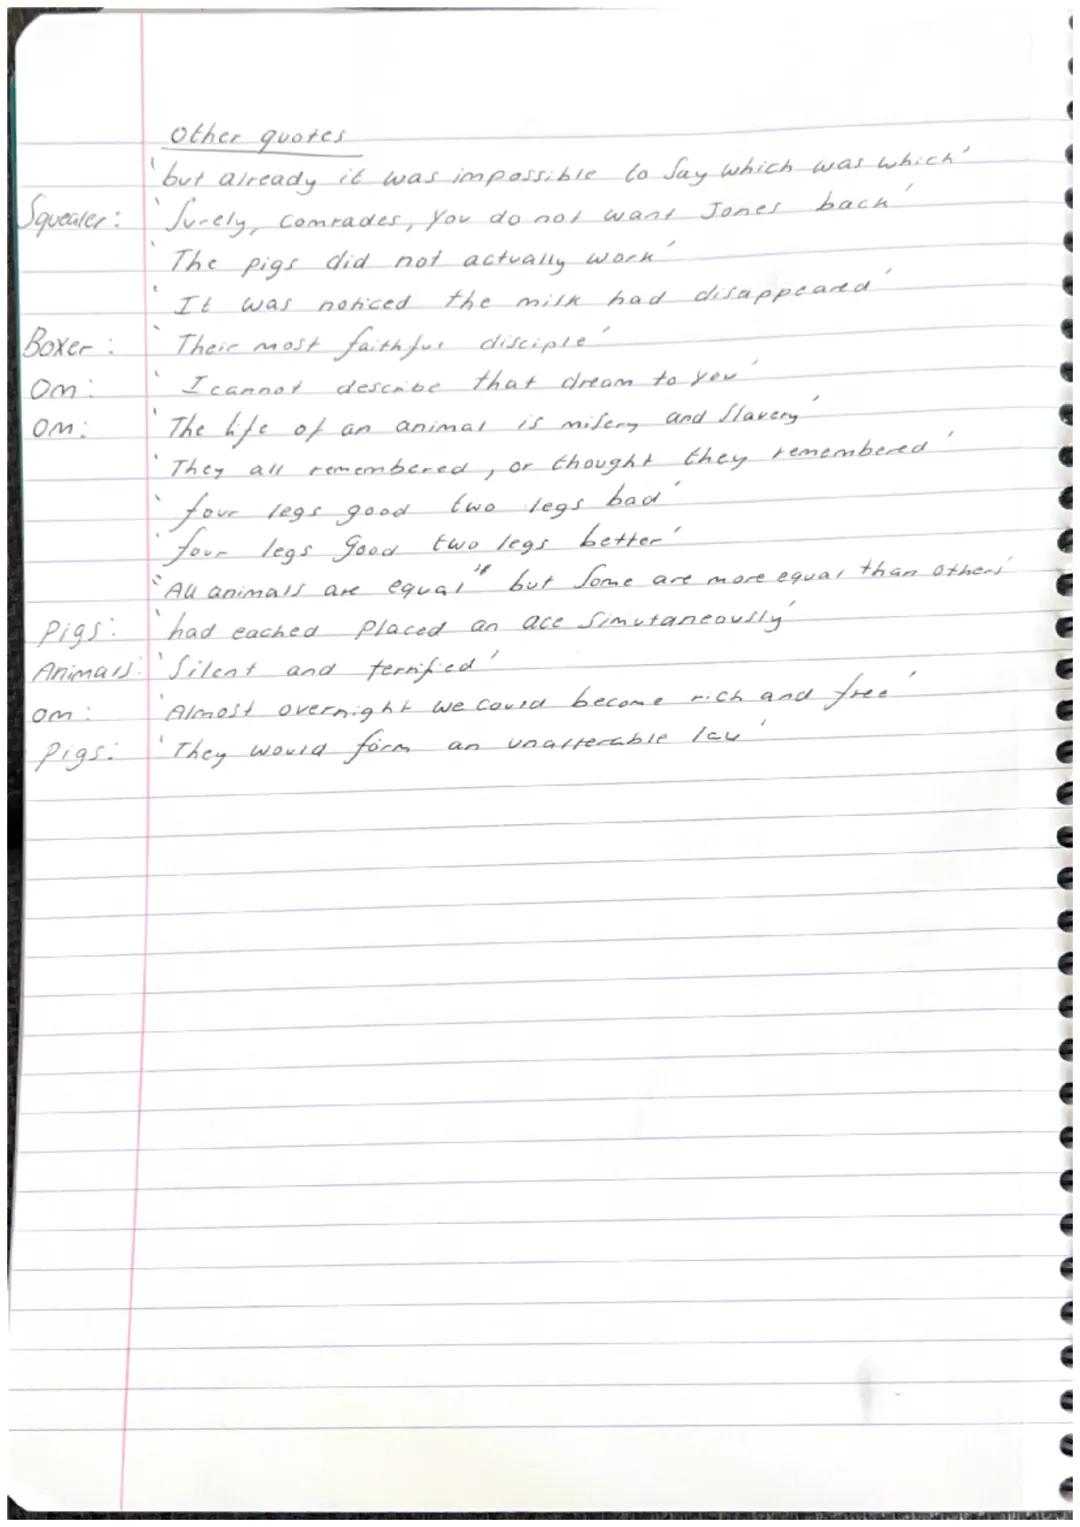 Other quotes
'but already it was impossible to say which was which'
Squealer: 'Surely, comrades, you do not want Jones back'
'The pigs did not actually work'
'It was noticed the milk had disappeared'
Boxer: 'Their most faithful disciple'
OM: 'I cannot describe that dream to you'
OM: 'The life of an animal is misery and slavery'
'They all remembered, or thought they remembered'
'four legs good two legs bad'
'four legs good two legs better'
"All animals are equal" but some are more equal than others'
Pigs: 'had eached placed an ace simutaneously'
Animals: 'Silent and terrified'
OM: 'Almost overnight we could become rich and free'
Pigs: 'They would form an unalterable law'